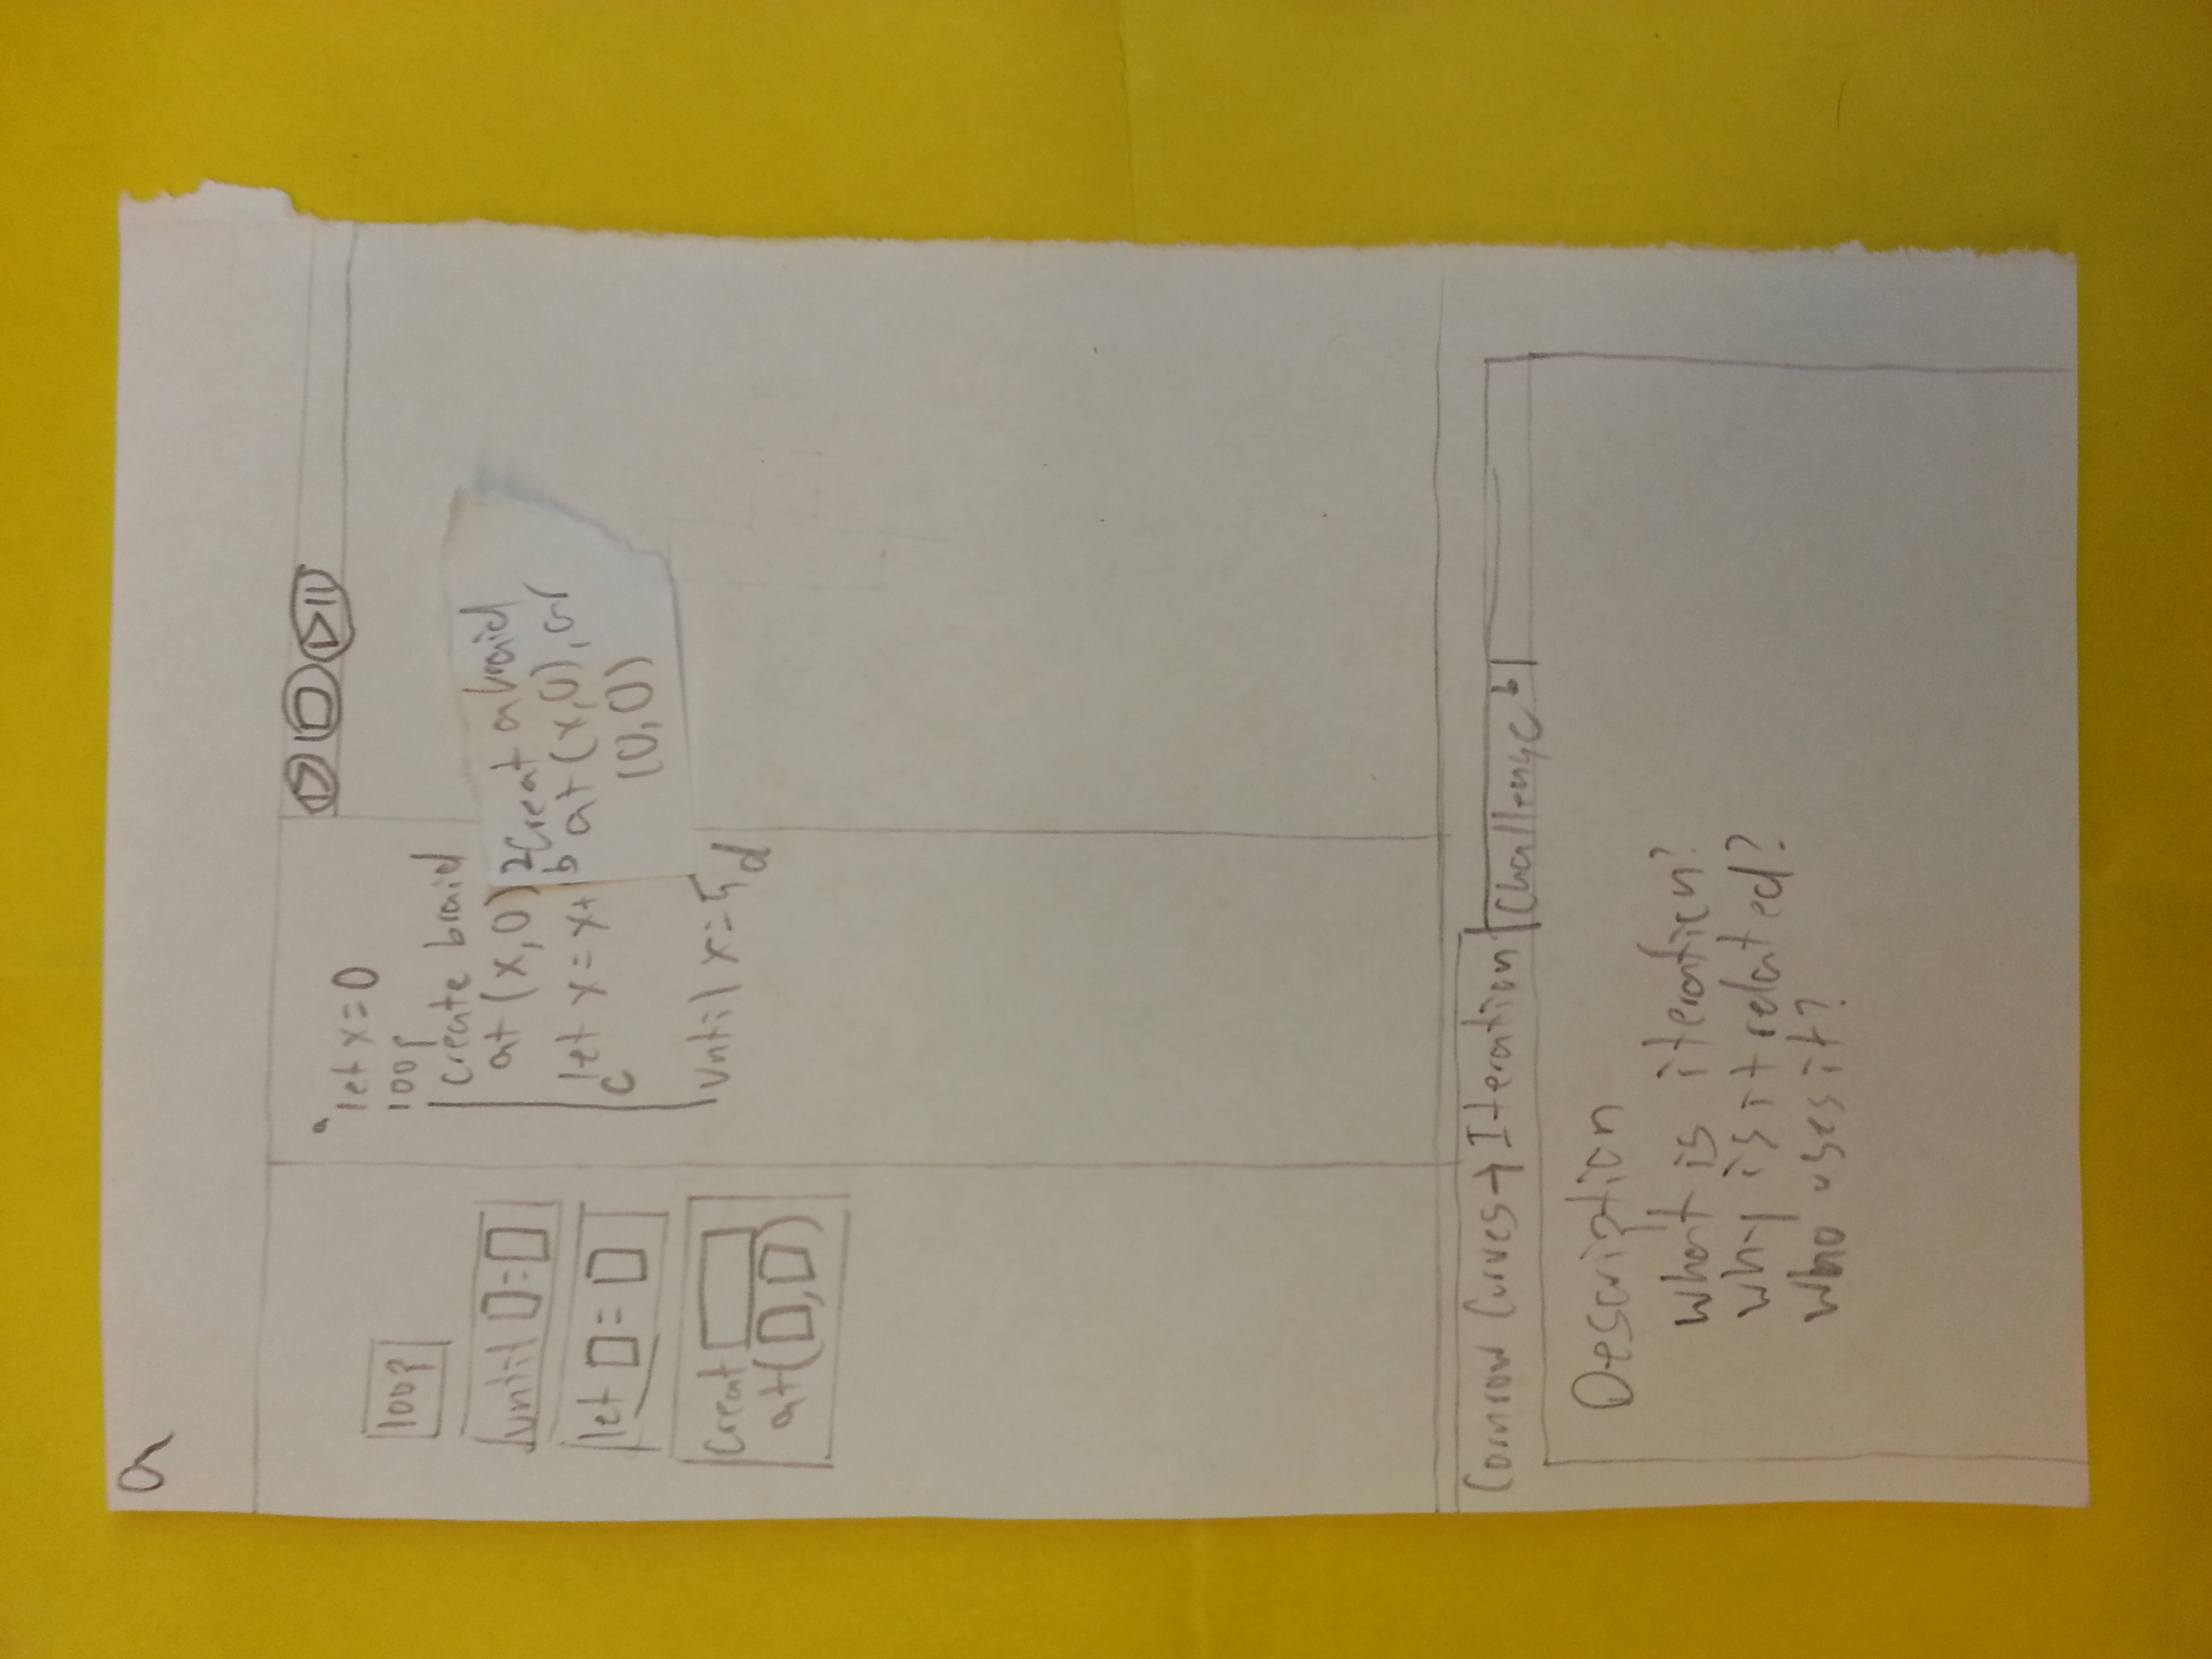 a
loop
until □=□
let □=□
Creat
at(□,□)
a
let x=0
loop
create braid
at (x,0)
let x=x+1
c
until x=5
d
2 Creat a braid
b at (x,0), or
(0,0)
Cornrow Curves → Iteration
Challenge b
Description
What is iteration?
Why is it related?
Who uses it?